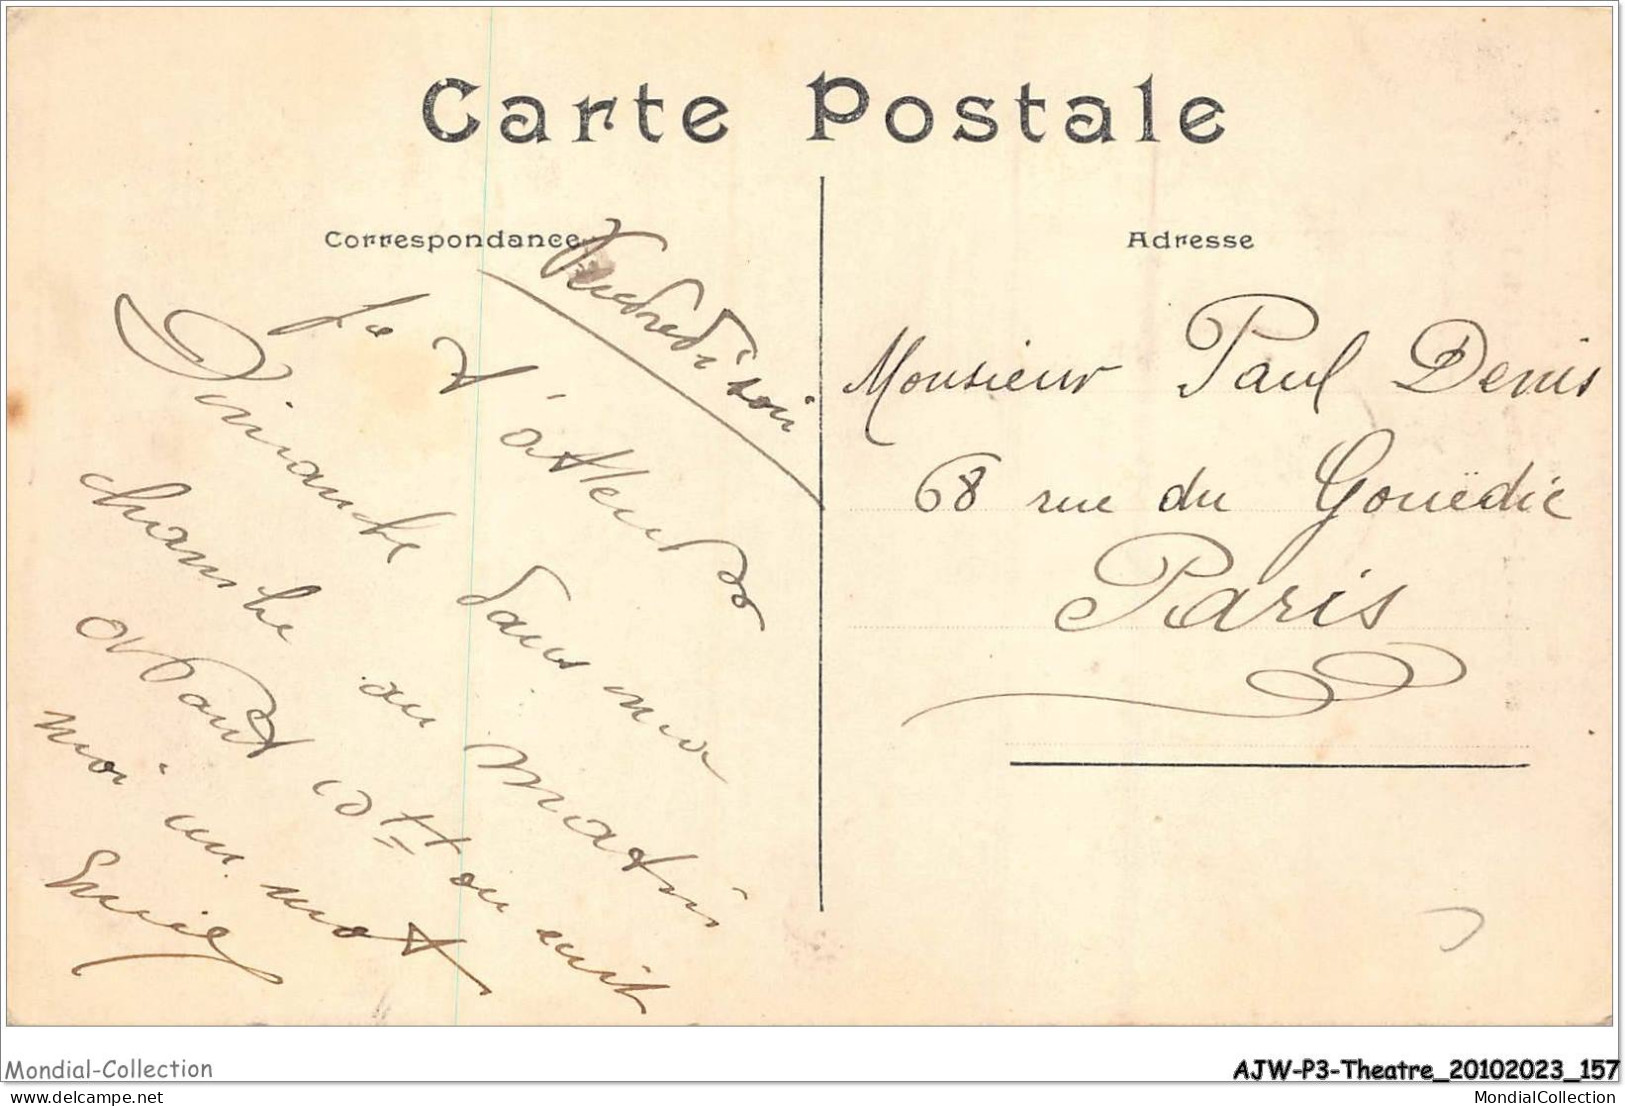 Carte Postale
Correspondance
Adresse
Vendredi soir
Je t'attendrai
Dimanche dans ma
chambre au matin
avant 10 h ou
moi un mot
Emile
Monsieur Paul Denis
68 rue du Gouëdic
Paris
Mondial-Collection
AJW-P3-Theatre_20102023_157
MondialCollection